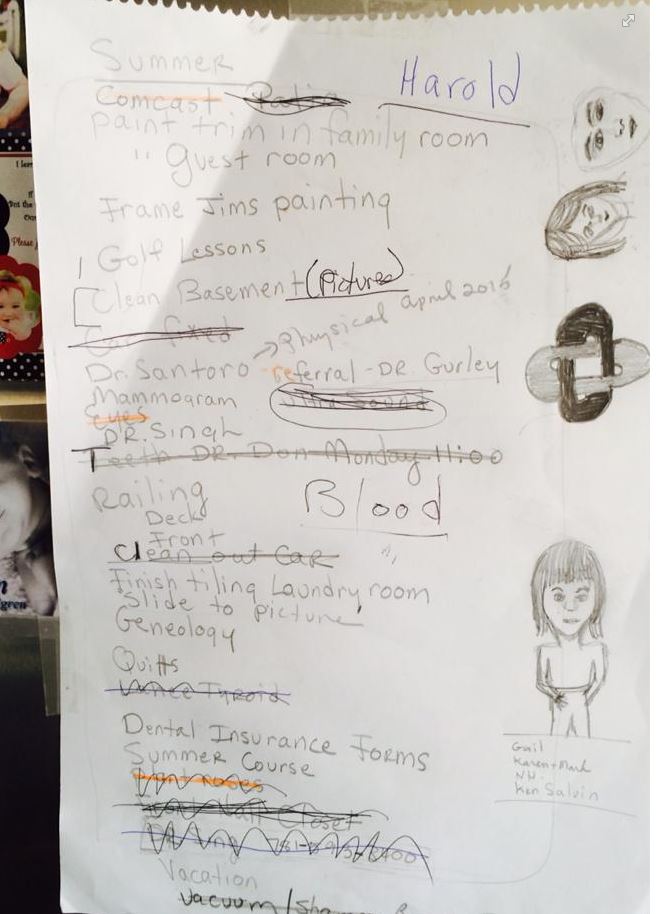 Summer
Harold
Comcast
paint trim in family room
" guest room
Frame Jims painting
1 Golf Lessons
Clean Basement (Pictures)
Car fixed
Physical April 2016
Dr. Santoro referral - DR. Gurley
Mammogram
ultra sound
eyes
DR. Singh
Teeth DR. Don Monday 11:00
Railing
Blood
Deck
Front
Clean out Car
Finish tiling Laundry room
Slide to picture
Geneology
Quilts
Dental Insurance Forms
Summer Course
Closet
Vacation
Vacuum/
Gail
Karen + Mark
NH.
Ken Salvin